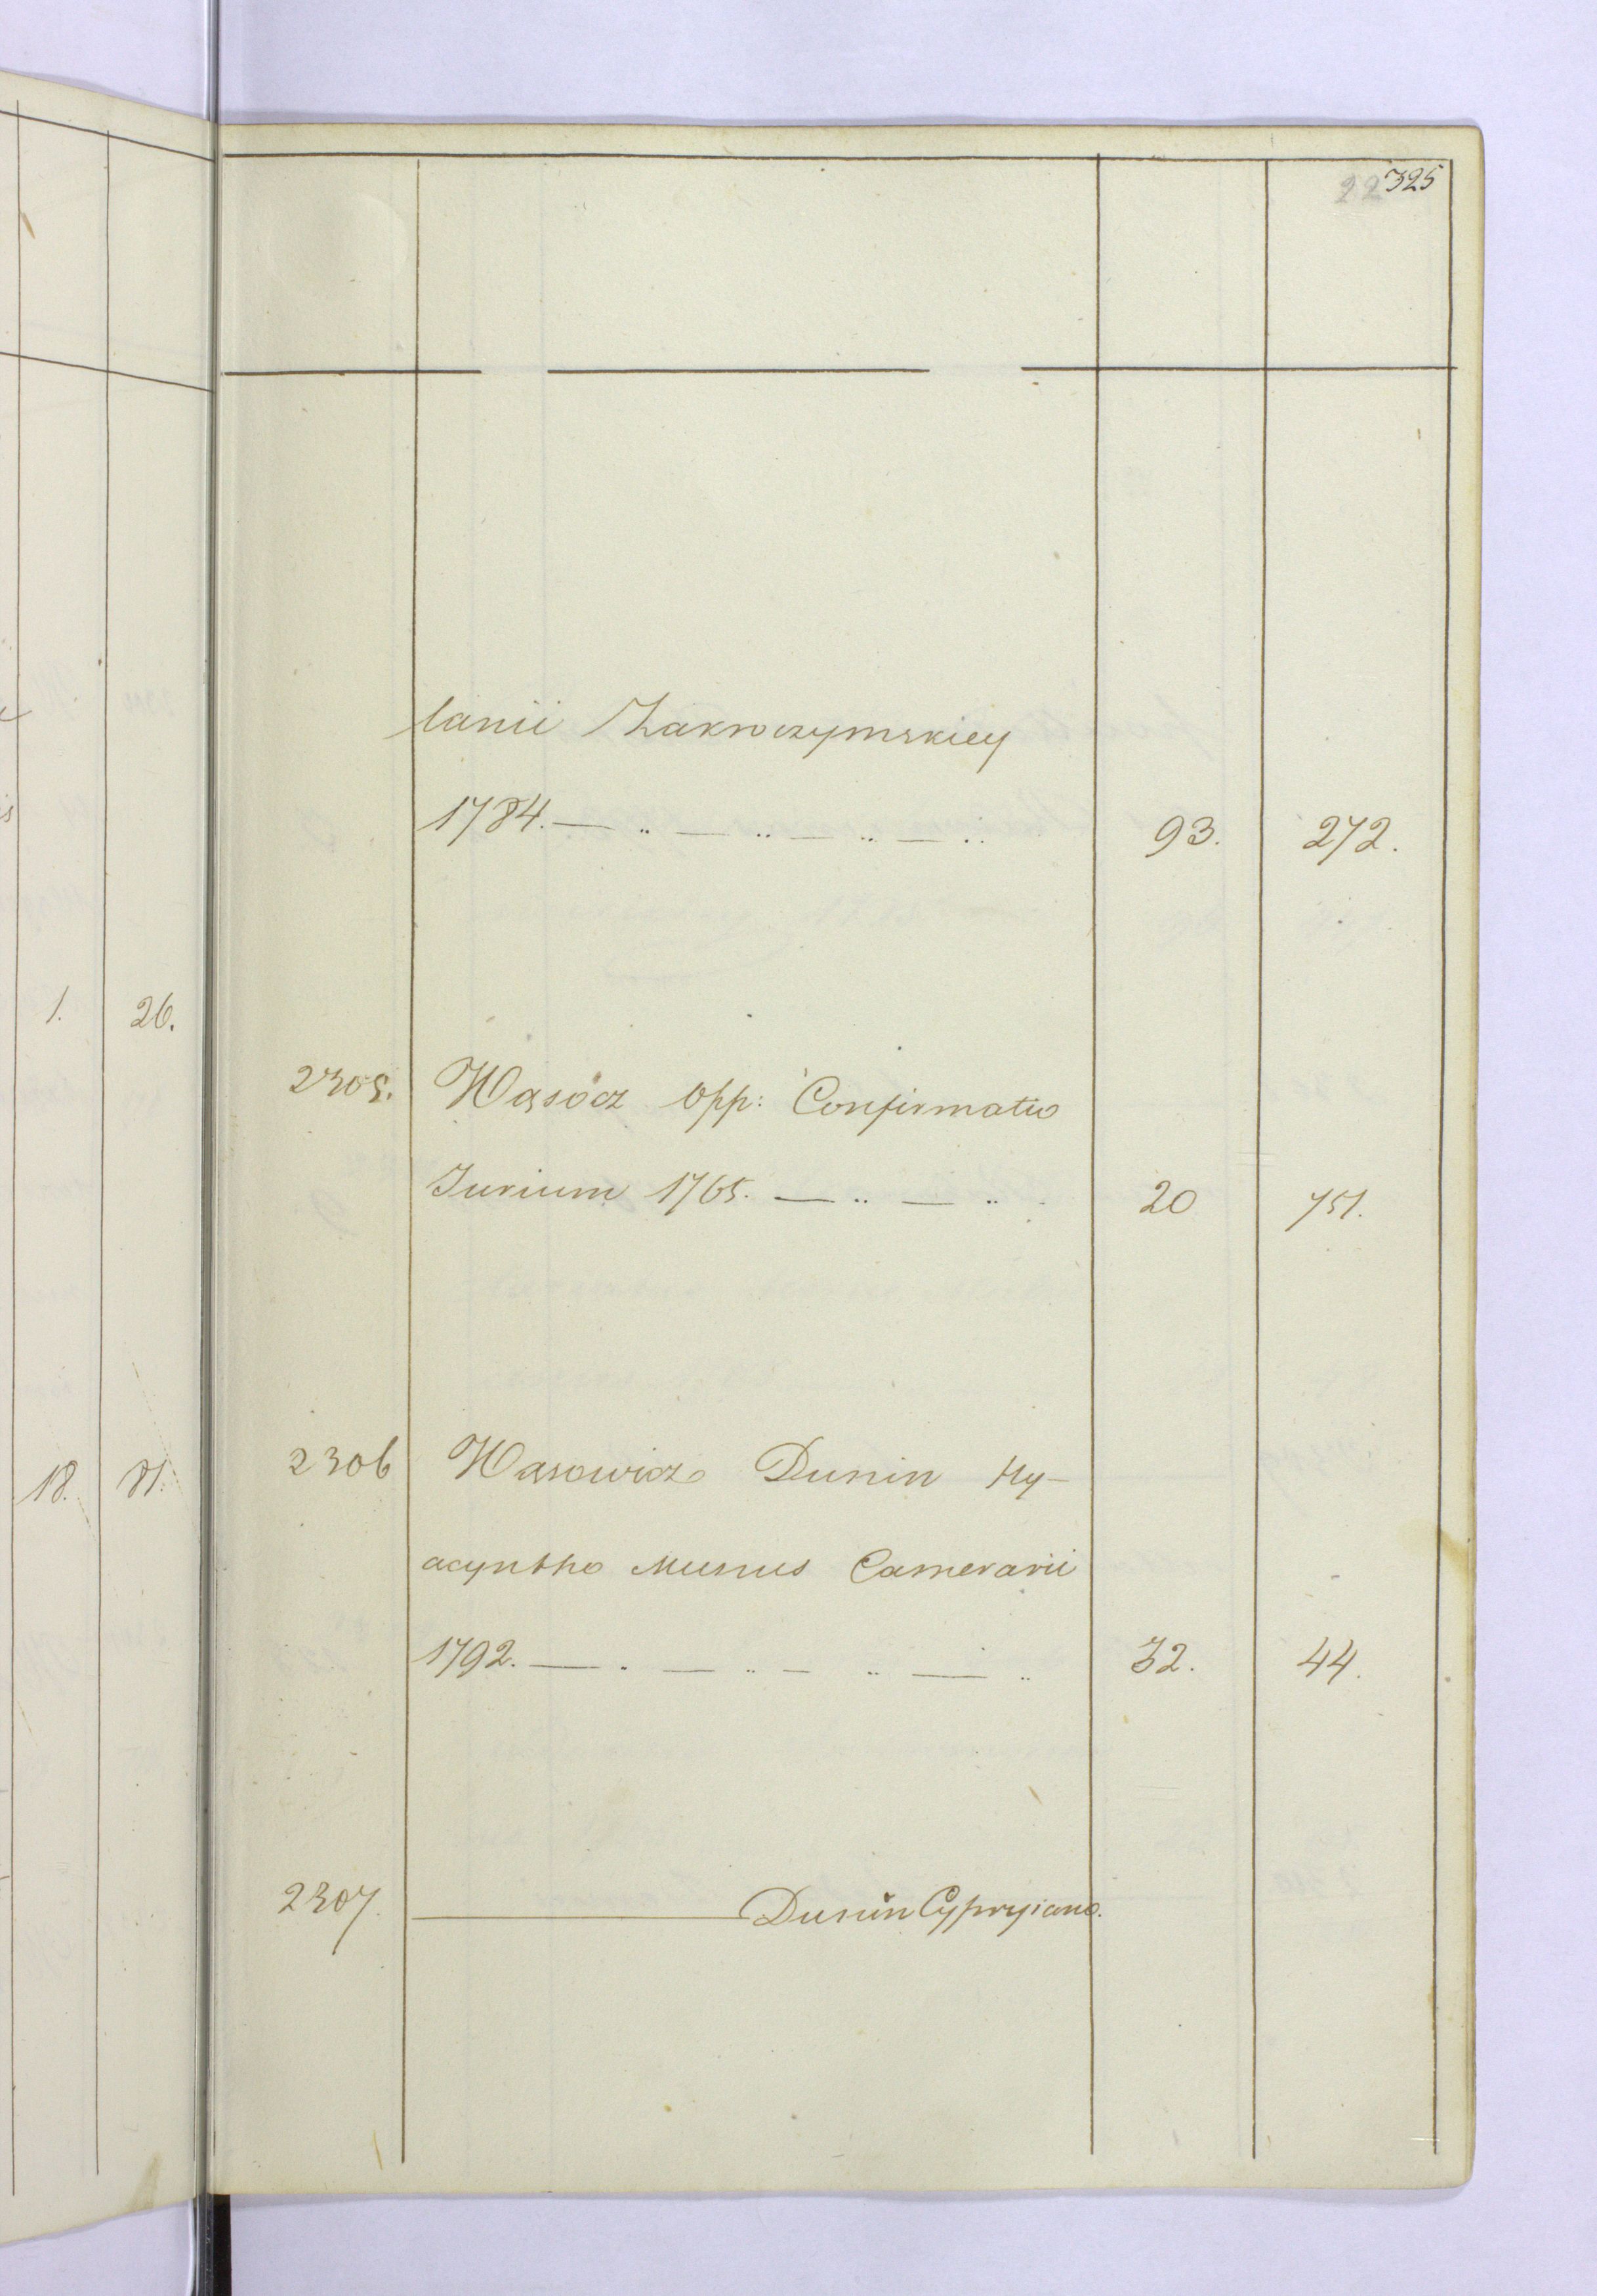 22 325
lanii Zakroczymskiey
1784. — .. — .. — .. — .. 93. 272.
1. 26.
2305. Wąsocz Opp: Confirmatio
Jurium 1765. — .. — .. - 20 751.
18. 81.
2306 Wąsowicz Dunin Hy-
acyntho Munus Camerarii
1792. — . — .. — .. — .. 32. 44.
2307. ——— Dunin Cypryiano.